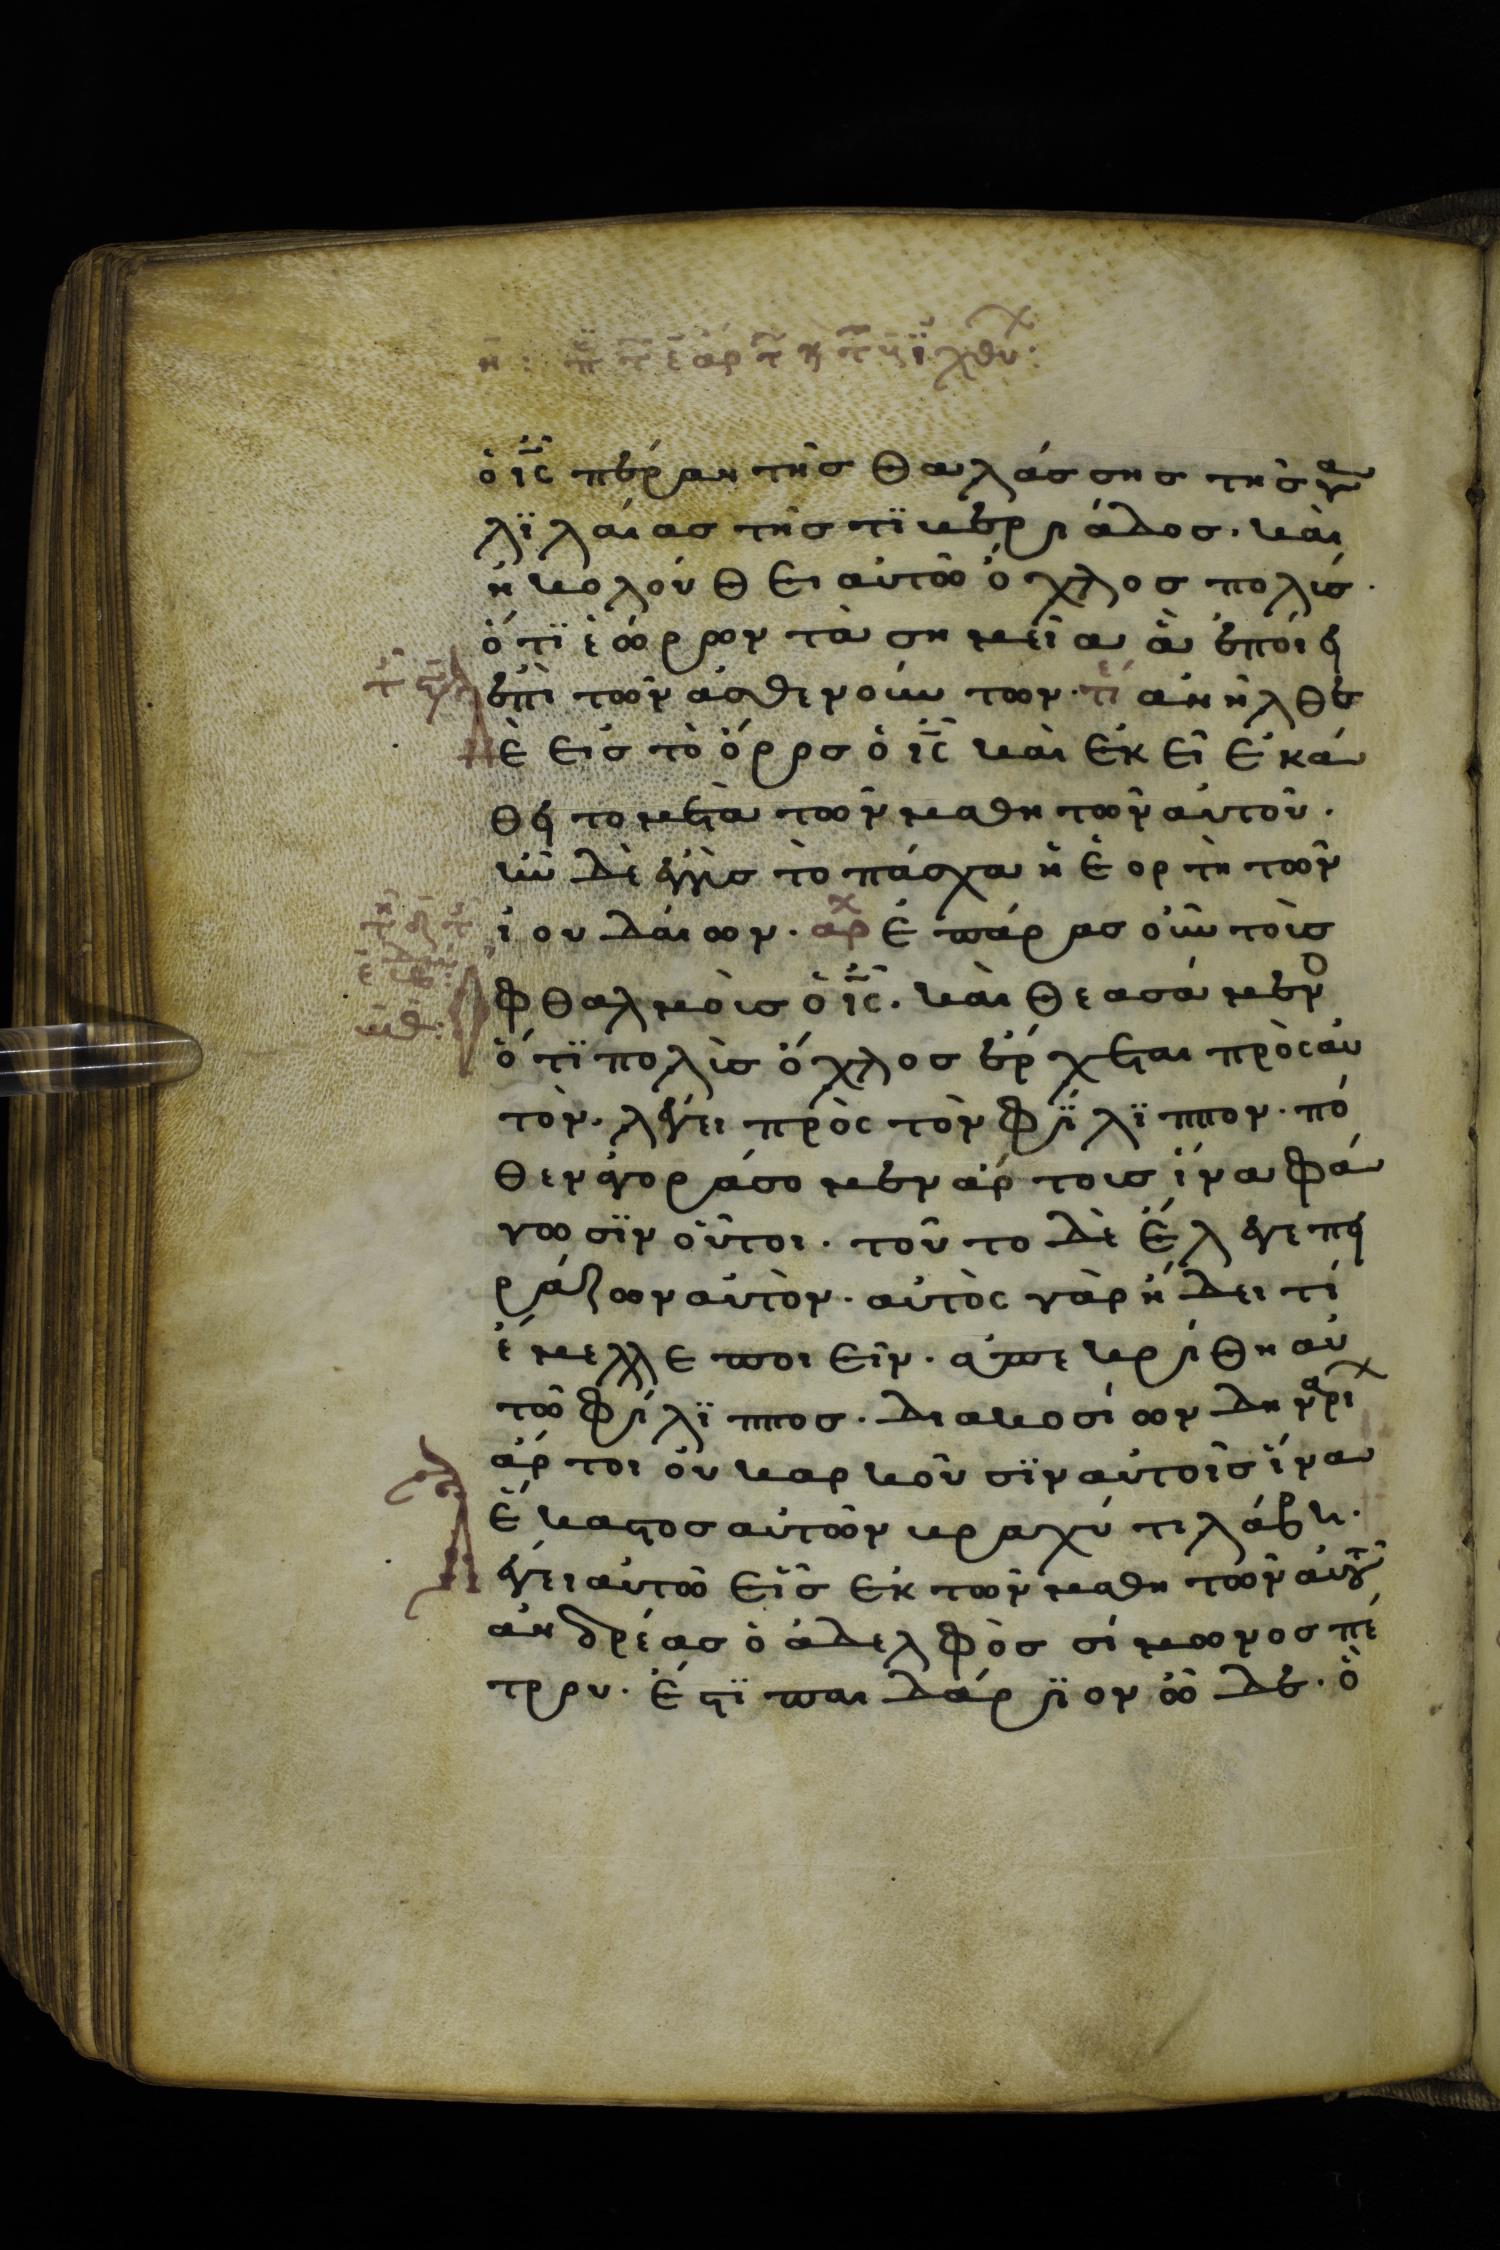 η: π τ ε αρτ κ τ β ϊχθυ:
ὁ ις πέραν τῆς θαλάσσης τῆς γα
λϊλαίας τῆς τϊβεριάδος. καὶ
ἠκολούθει αὐτῶ ὄχλος πολὶς.
ὅτϊ ἑώρρον τὰ σημεῖα ἃ ἐποίει
ἐπὶ τῶν ἀσθενούντων. τε ἀνῆλθε
ὲ εἰς τὸ ὄρρος ὁ ις καὶ ἐκεῖ ἐκά
θητο μετὰ τῶν μαθητῶν αὐτοῦ.
ἦν δὲ ἐγγὶς τὸ πάσχα ἡ ἑορτὴ τῶν
ἰουδαίων. αρχ ἐπάρας οὖν τοὶς
ὀφθαλμοὶς ὁ ις. καὶ θεασάμενο
ὅτϊ πολὶς ὄχλος ἔρχεται πρὸς αὐ
τὸν. λέγει πρὸς τὸν φίλϊππον. πό
θεν ἀγοράσομεν ἄρτοις ἵνα φά
γωσϊν οὗτοι. τοῦτο δὲ ἔλεγε πει
ράζων αὐτὸν. αὐτὸς γὰρ ἤδει τί
ἔμελλε ποιεῖν. ἀπεκρίθη αὐ
τῶ φίλϊππος. διακοσίων δηναρί
ἄρτοι οὐκ αρκοῦσϊν αὐτοῖς ἵνα
ἕκαστος αὐτῶν βραχύ τι λάβη.
λέγει αὐτῶ εἷς ἐκ τῶν μαθητῶν αὐτ
ἀνδρέας ὁ ἀδελφὸς σίμωνος πέ
τρου. ἔστϊ παιδάρϊον ὧδε. ὃ